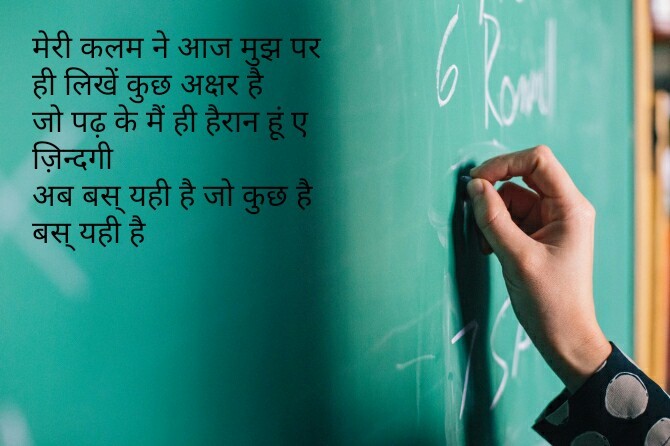 मेरी कलम ने आज मुझ पर
ही लिखें कुछ अक्षर है
जो पढ़ के मैं ही हैरान हूं ए
ज़िन्दगी
अब बस् यही है जो कुछ है
बस् यही है
6